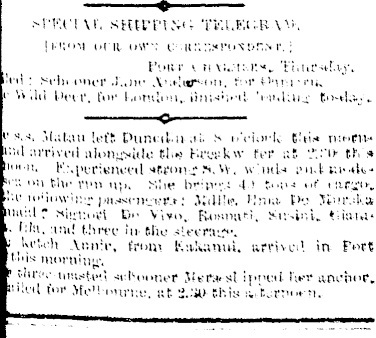 SPECIAL SHIPPING TELEGRAM.
[FROM OUR OWN CORRESPONDENT.]
PORT CHALMERS, Thursday.
led: Schooner Jane Anderson, for
e Wild Deer, for London, finished loading to-day.
e s.s. Matau left Dunedin at 8 o'clock this morn-
and arrived alongside the Breakw ter at 2.20 this
noon. Experienced strong S.W. winds and mode-
sea on the run up. She brings 40 tons of cargo,
he following passengers: Mdlle. Ilma De Murska
maid? Signori De Vivo, Rosnati, Susini,
and three in the steerage.
e ketch Annie, from Kakanui, arrived in Port
this morning.
e three-masted schooner ipped her anchor,
ailed for Melbourne, at 2.30 this afternoon.